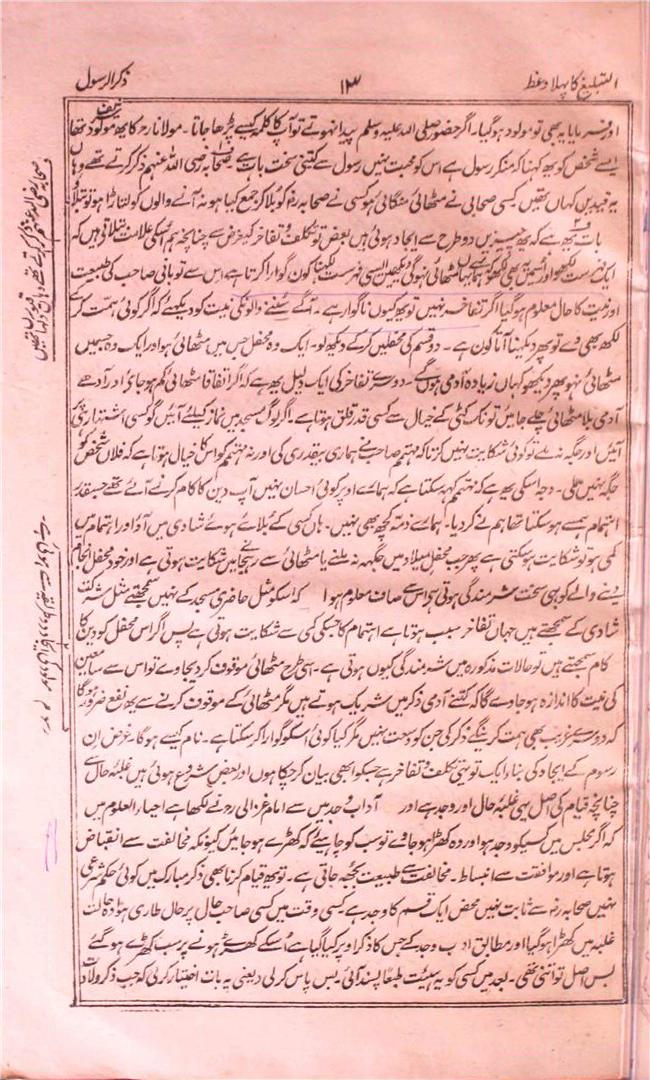 التبلیغ کا پہلا وعظ ۱۳ ذکر الرسول
اور فرمایا یہ بھی تو مولود ہوگیا۔ اگر حضور صلی اللہ علیہ وسلم پیدا نہوتے تو آپ کا کلمہ کیسے پڑھا جاتا۔ مولانا رح کا یہ مولود شریف تھا
ایسے شخص کو یہ کہنا کہ منکر رسول ہے اس کو محبت نہیں رسول سے کتنی سخت بات ہے۔ صحابہ رضی اللہ عنہم ذکر کرتے تھے وہاں
یہ قیدیں کہاں تھیں کسی صحابی نے مٹھائی منگائی ہو کسی نے صحابہ رض کو بلا کر جمع کیا ہو نہ آنے والوں کو لتاڑا ہو تو بتلاؤ
بات یہ ہے کہ یہ چیزیں دو طرح سے ایجاد ہوئی ہیں بعض تو تکلف و تفاخر کی غرض سے چنانچہ ہم اسکی علامت بتلاتے ہیں کہ
ایک فہرست لکھو اور اسمیں یہ بھی لکھو کہ یہاں مٹھائی نہوگی دیکھیں ایسی فہرست لکھنا کون گوارا کرتا ہے اس سے تو بانی صاحب کی طبیعت
اور نیت کا حال معلوم ہوگیا اگر تفاخر نہیں تو یہ کیوں ناگوار ہے۔ آگے سُننے والونکی نیت کو دیکھئے کہ اگر کوئی ہمت کرکے
لکھ بھی دے تو پھر دیکھنا آتا کون ہے۔ دو قسم کی محفلیں کرکے دیکھ لو۔ ایک وہ محفل جس میں مٹھائی ہو اور ایک وہ جسمیں
مٹھائی نہو پھر دیکھو کہاں زیادہ آدمی ہوں گے۔ دوسرے تفاخر کی ایک دلیل یہ ہے کہ اگر اتفاقاً مٹھائی کم ہو جائے اور آدھے
آدمی بلا مٹھائی چلے جائیں تو ناک کٹی کے خیال سے کسی قدر قلق ہوتا ہے۔ اگر لوگ مسجد میں نماز کیلئے آئیں گو کسی اشتہار ہی پر
آئیں اور جگہ نہ ملے تو کوئی شکایت نہیں کرتا کہ مہتمم صاحب نے ہماری بیقدری کی اور نہ مہتمم کو اس کا خیال ہوتا ہے کہ فلاں شخص کو
جگہ نہیں ملی۔ وجہ اسکی یہ ہے کہ مہتمم کہہ سکتا ہے کہ ہمارے اوپر کوئی احسان نہیں آپ دین کا کام کرنے آئے تھے جسقدر
انتظام ہم سے ہوسکتا تھا ہم نے کردیا۔ ہمارے ذمہ کچھ بھی نہیں۔ ہاں کسی کے بلائے ہوئے شادی میں آؤ اور اہتمام میں
کمی ہو تو شکایت ہوسکتی ہے پھر جب محفل میلاد میں جگہہ نہ ملنے یا مٹھائی سے رہنے میں شکایت ہوتی ہے اور خود محفل انجام
دینے والے کو بھی سخت شرمندگی ہوتی ہے اس سے صاف معلوم ہوا کہ اسکو مثل حاضری مسجد کے نہیں سمجھتے مثل شرکت
شادی کے سمجھتے ہیں جہاں تفاخر سبب ہوتا ہے اہتمام کا جسکی کمی سے شکایت ہوتی ہے پس اگر اس محفل کو دین کا
کام سمجھتے ہیں تو حالات مذکورہ میں شرمندگی کیوں ہوتی ہے۔ اسی طرح مٹھائی موقوف کردیجاوے تو اس سے سامعین
کی نیت کا اندازہ ہوجاوے گا کہ کتنے آدمی ذکر میں شریک ہوتے ہیں مگر مٹھائی کے موقوف کرنے سے یہ نفع ضرور ہوگا
کہ دوسرے غریب بھی ہمت کریں گے ذکر کی جن کو وسعت نہیں مگر کیا کوئی اسکو گوارا کرسکتا ہے۔ نام کیسے ہوگا۔ غرض ان
رسوم کے ایجاد کی بناء ایک تو یہی تکلف و تفاخر ہے جسکو ابھی بیان کرچکا ہوں اور بعض شروع ہوئی ہیں غلبہ حال سے
چنانچہ قیام کی اصل یہی غلبہ حال اور وجد ہے اور آداب وجد میں سے امام غزالی رح نے لکھا ہے احیاء العلوم میں
کہ اگر مجلس میں کسیکو وجد ہو اور وہ کھڑا ہوجاوے تو سب کو چاہیئے کہ کھڑے ہوجائیں کیونکہ مخالفت سے انقباض
ہوتا ہے اور موافقت سے انبساط۔ مخالفت سے طبیعت بجھ جاتی ہے۔ تو یہ قیام کرنا بھی ذکر مبارک میں کوئی حکم شرعی
نہیں صحابہ رض سے ثابت نہیں محض ایک قسم کا وجد ہے کسی وقت میں کسی صاحب حال پر حال طاری ہوا وہ حالت
غلبہ میں کھڑا ہوگیا اور مطابق ادب وجد کے جس کا ذکر اوپر کیا گیا ہے اُسکے کھڑے ہونے پر سب کھڑے ہوگئے
بس اصل تو اتنی تھی۔ بعد میں کسی کو یہ ہیئت طبعاً پسند آئی۔ بس پاس کرلی دیعنی یہ بات اختیار کرلی کہ جب ذکر ولادت